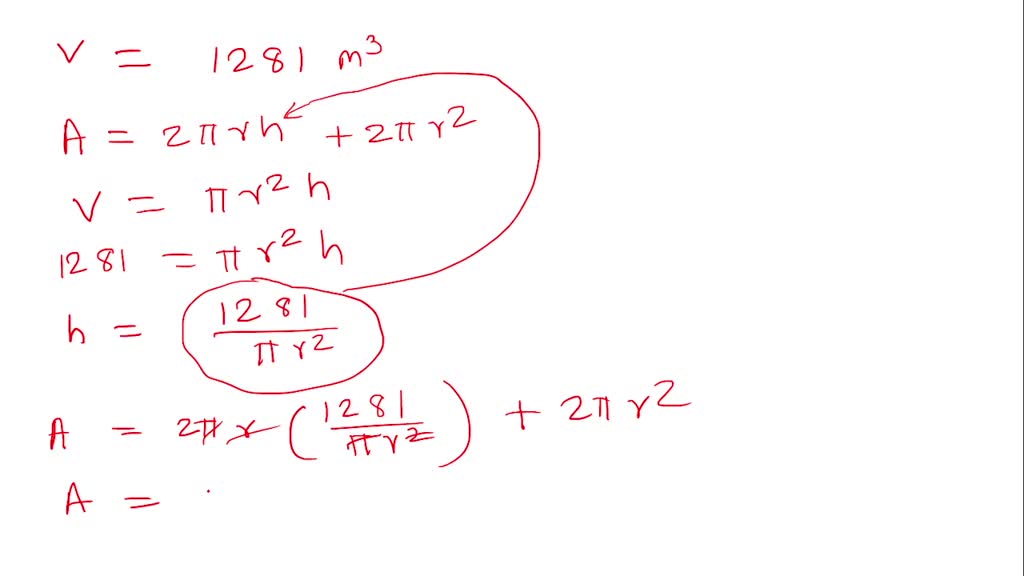 V = 1281 m³
A = 2πrh + 2πr²
V = πr²h
1281 = πr²h
h = 1281/πr²
A = 2πr (1281/πr²) + 2πr²
A =